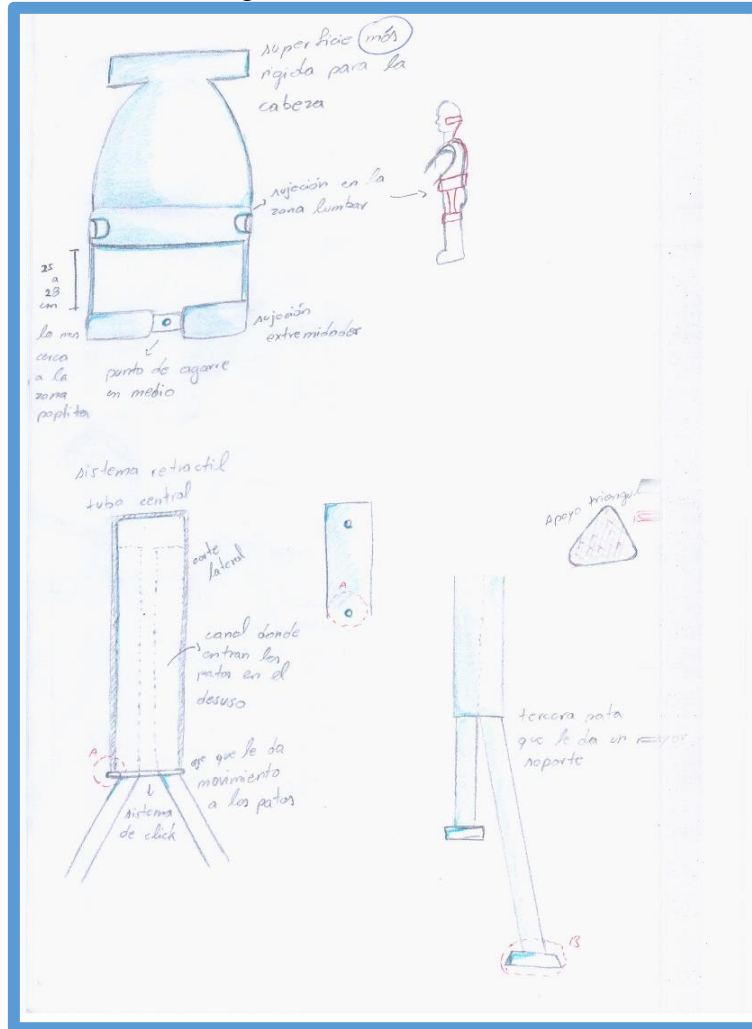 superficie más
rigida para la
cabeza
sujeción en la
zona lumbar
25
a
28
cm
sujeción
extremidades
lo mas
cerca
a la
zona
poplitea
punto de agarre
en medio
sistema retractil
tubo central
corte
lateral
canal donde
entran las
patas en el
desuso
A
eje que le da
movimiento
a las patas
sistema
de click
A
Apoyo triangul
tercera pata
que le da un mayor
soporte
B